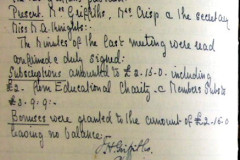 Present. Mrs Griffiths, Mrs Crisp & the Secretary
Miss M.A. Knights.
The Minutes of the last meeting were read
confirmed & duly signed.
Subscriptions amounted to £2.15.0. including
£2. from Educational Charity. & Members Subs
£2.9.9.
Bonuses were granted to the amount of £2.15.0
leaving no balance.